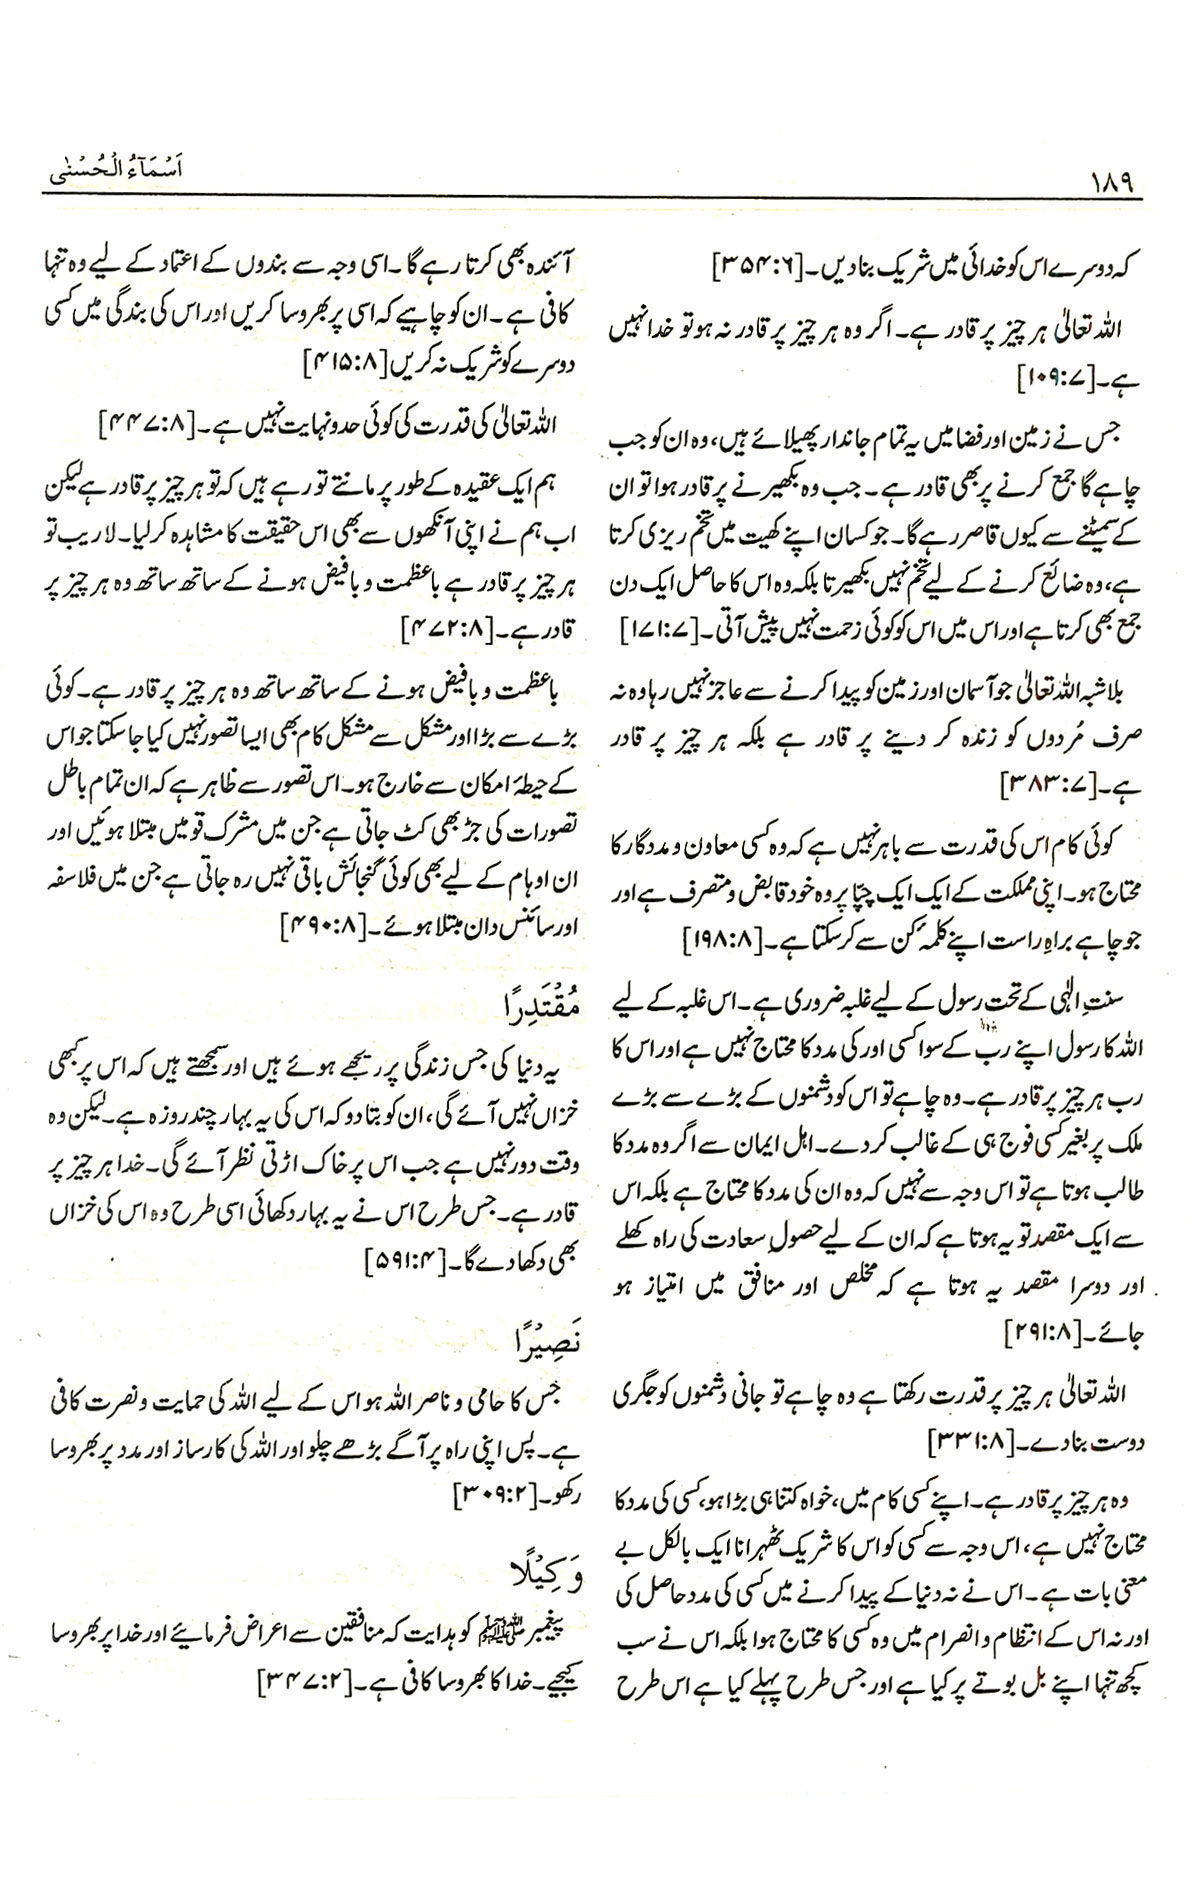 ۱۸۹
اَسْمَآءُ الْحُسْنٰی
کہ دوسرے اس کو خدائی میں شریک بنا دیں۔[۳۵۴:۶]
اللہ تعالیٰ ہر چیز پر قادر ہے۔ اگر وہ ہر چیز پر قادر نہ ہو تو خدا نہیں
ہے۔[۱۰۹:۷]
جس نے زمین اور فضا میں یہ تمام جاندار پھیلائے ہیں، وہ ان کو جب
چاہے گا جمع کرنے پر بھی قادر ہے۔ جب وہ بکھیرنے پر قادر ہوا تو ان
کے سمیٹنے سے کیوں قاصر رہے گا۔ جو کسان اپنے کھیت میں تخم ریزی کرتا
ہے، وہ ضائع کرنے کے لیے تخم نہیں بکھیرتا بلکہ وہ اس کا حاصل ایک دن
جمع بھی کرتا ہے اور اس میں اس کو کوئی زحمت نہیں پیش آتی۔[۱۷۱:۷]
بلاشبہ اللہ تعالیٰ جو آسمان اور زمین کو پیدا کرنے سے عاجز نہیں رہا وہ نہ
صرف مُردوں کو زندہ کر دینے پر قادر ہے بلکہ ہر چیز پر قادر
ہے۔[۳۸۳:۷]
کوئی کام اس کی قدرت سے باہر نہیں ہے کہ وہ کسی معاون و مددگار کا
محتاج ہو۔ اپنی مملکت کے ایک ایک چپّا پر وہ خود قابض و متصرف ہے اور
جو چاہے براہِ راست اپنے کلمۂ کن سے کر سکتا ہے۔[۱۹۸:۸]
سنتِ الٰہی کے تحت رسول کے لیے غلبہ ضروری ہے۔ اس غلبہ کے لیے
اللہ کا رسول اپنے رب کے سوا کسی اور کی مدد کا محتاج نہیں ہے اور اس کا
رب ہر چیز پر قادر ہے۔ وہ چاہے تو اس کو دشمنوں کے بڑے سے بڑے
ملک پر بغیر کسی فوج ہی کے غالب کر دے۔ اہل ایمان سے اگر وہ مدد کا
طالب ہوتا ہے تو اس وجہ سے نہیں کہ وہ ان کی مدد کا محتاج ہے بلکہ اس
سے ایک مقصد تو یہ ہوتا ہے کہ ان کے لیے حصولِ سعادت کی راہ کھلے
اور دوسرا مقصد یہ ہوتا ہے کہ مخلص اور منافق میں امتیاز ہو
جائے۔[۲۹۱:۸]
اللہ تعالیٰ ہر چیز پر قدرت رکھتا ہے وہ چاہے تو جانی دشمنوں کو جگری
دوست بنا دے۔[۳۳۱:۸]
وہ ہر چیز پر قادر ہے۔ اپنے کسی کام میں، خواہ کتنا ہی بڑا ہو، کسی کی مدد کا
محتاج نہیں ہے، اس وجہ سے کسی کو اس کا شریک ٹھہرانا ایک بالکل بے
معنی بات ہے۔ اس نے نہ دنیا کے پیدا کرنے میں کسی کی مدد حاصل کی
اور نہ اس کے انتظام و انصرام میں وہ کسی کا محتاج ہوا بلکہ اس نے سب
کچھ تنہا اپنے بل بوتے پر کیا ہے اور جس طرح پہلے کیا ہے اس طرح
آئندہ بھی کرتا رہے گا۔ اسی وجہ سے بندوں کے اعتماد کے لیے وہ تنہا
کافی ہے۔ ان کو چاہیے کہ اسی پر بھروسا کریں اور اس کی بندگی میں کسی
دوسرے کو شریک نہ کریں[۴۱۵:۸]
اللہ تعالیٰ کی قدرت کی کوئی حد و نہایت نہیں ہے۔[۴۴۷:۸]
ہم ایک عقیدہ کے طور پر مانتے تو رہے ہیں کہ تو ہر چیز پر قادر ہے لیکن
اب ہم نے اپنی آنکھوں سے بھی اس حقیقت کا مشاہدہ کر لیا۔ لاریب تو
ہر چیز پر قادر ہے باعظمت و بافیض ہونے کے ساتھ ساتھ وہ ہر چیز پر
قادر ہے۔[۴۷۲:۸]
باعظمت و بافیض ہونے کے ساتھ ساتھ وہ ہر چیز پر قادر ہے۔ کوئی
بڑے سے بڑا اور مشکل سے مشکل کام بھی ایسا تصور نہیں کیا جا سکتا جو اس
کے حیطۂ امکان سے خارج ہو۔ اس تصور سے ظاہر ہے کہ ان تمام باطل
تصورات کی جڑ بھی کٹ جاتی ہے جن میں مشرک قومیں مبتلا ہوئیں اور
ان اوہام کے لیے بھی کوئی گنجائش باقی نہیں رہ جاتی ہے جن میں فلاسفہ
اور سائنس دان مبتلا ہوئے۔[۴۹۰:۸]
مُقْتَدِرًا
یہ دنیا کی جس زندگی پر ریجھے ہوئے ہیں اور سمجھتے ہیں کہ اس پر کبھی
خزاں نہیں آئے گی، ان کو بتا دو کہ اس کی یہ بہار چند روزہ ہے۔ لیکن وہ
وقت دور نہیں ہے جب اس پر خاک اڑتی نظر آئے گی۔ خدا ہر چیز پر
قادر ہے۔ جس طرح اس نے یہ بہار دکھائی اسی طرح وہ اس کی خزاں
بھی دکھا دے گا۔[۵۹۱:۴]
نَصِیْرًا
جس کا حامی و ناصر اللہ ہو اس کے لیے اللہ کی حمایت و نصرت کافی
ہے۔ پس اپنی راہ پر آگے بڑھے چلو اور اللہ کی کارساز اور مدد پر بھروسا
رکھو۔[۳۰۹:۲]
وَکِیْلًا
پیغمبر ﷺ کو ہدایت کہ منافقین سے اعراض فرمائیے اور خدا پر بھروسا
کیجیے۔ خدا کا بھروسا کافی ہے۔[۳۴۷:۲]